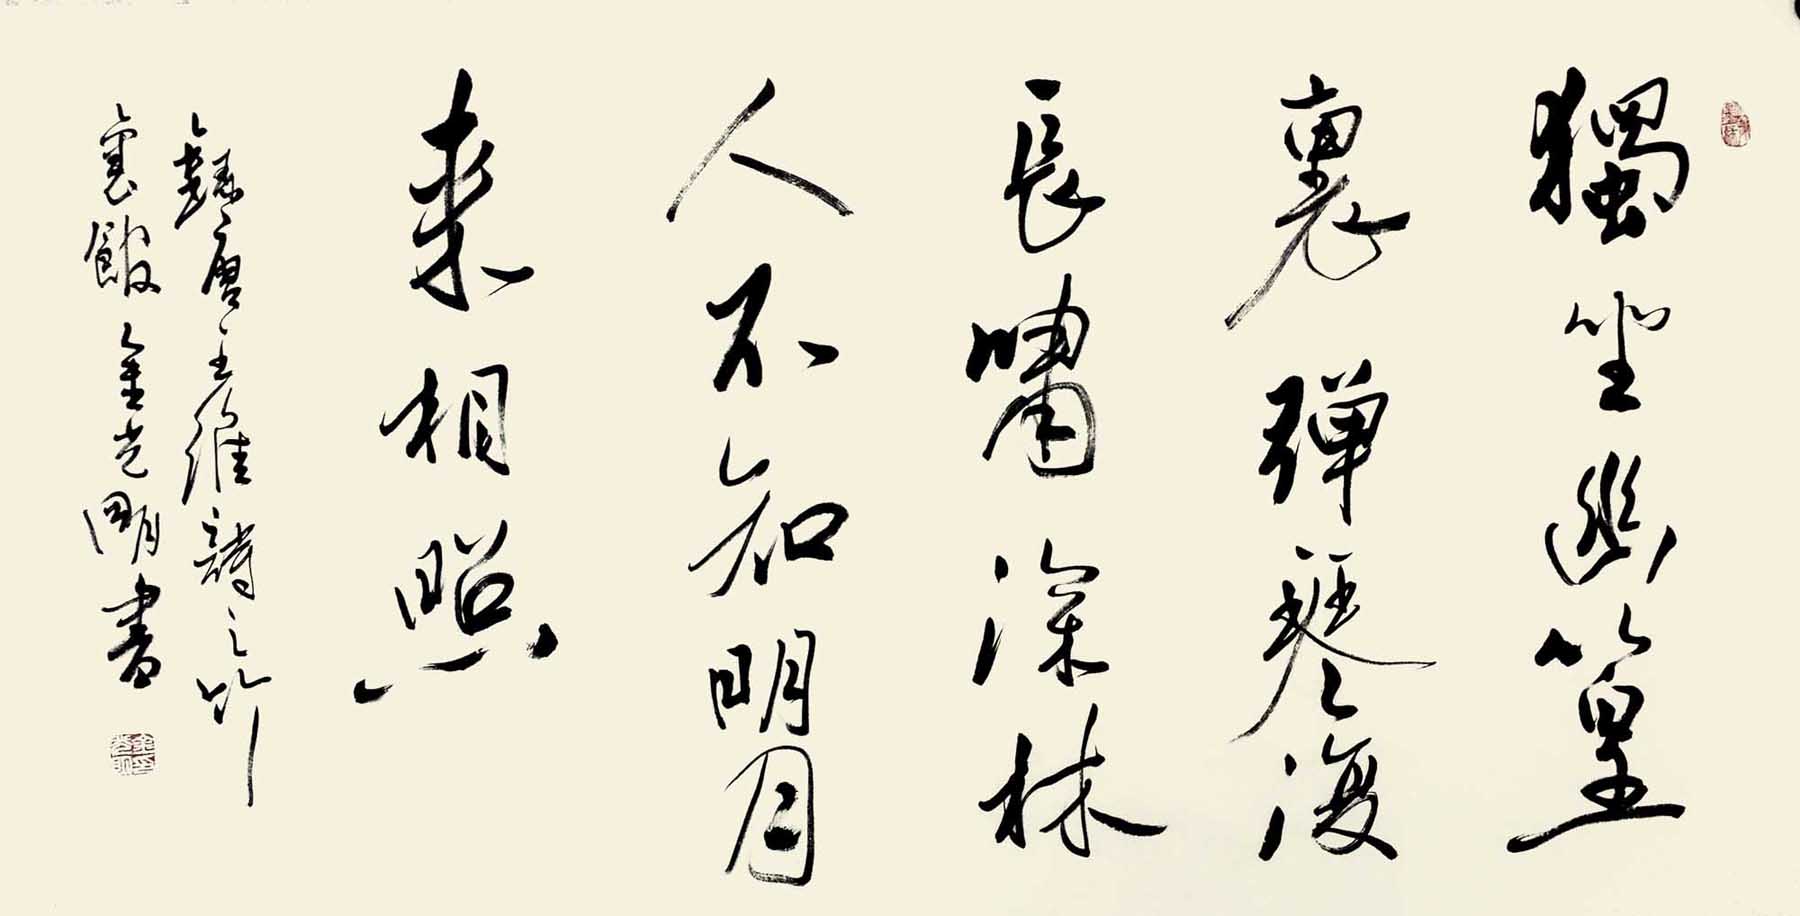 獨坐幽篁
裏彈琴復
長嘯深林
人不知明月
来相照
錄唐王維詩之竹
裏館 金光明書